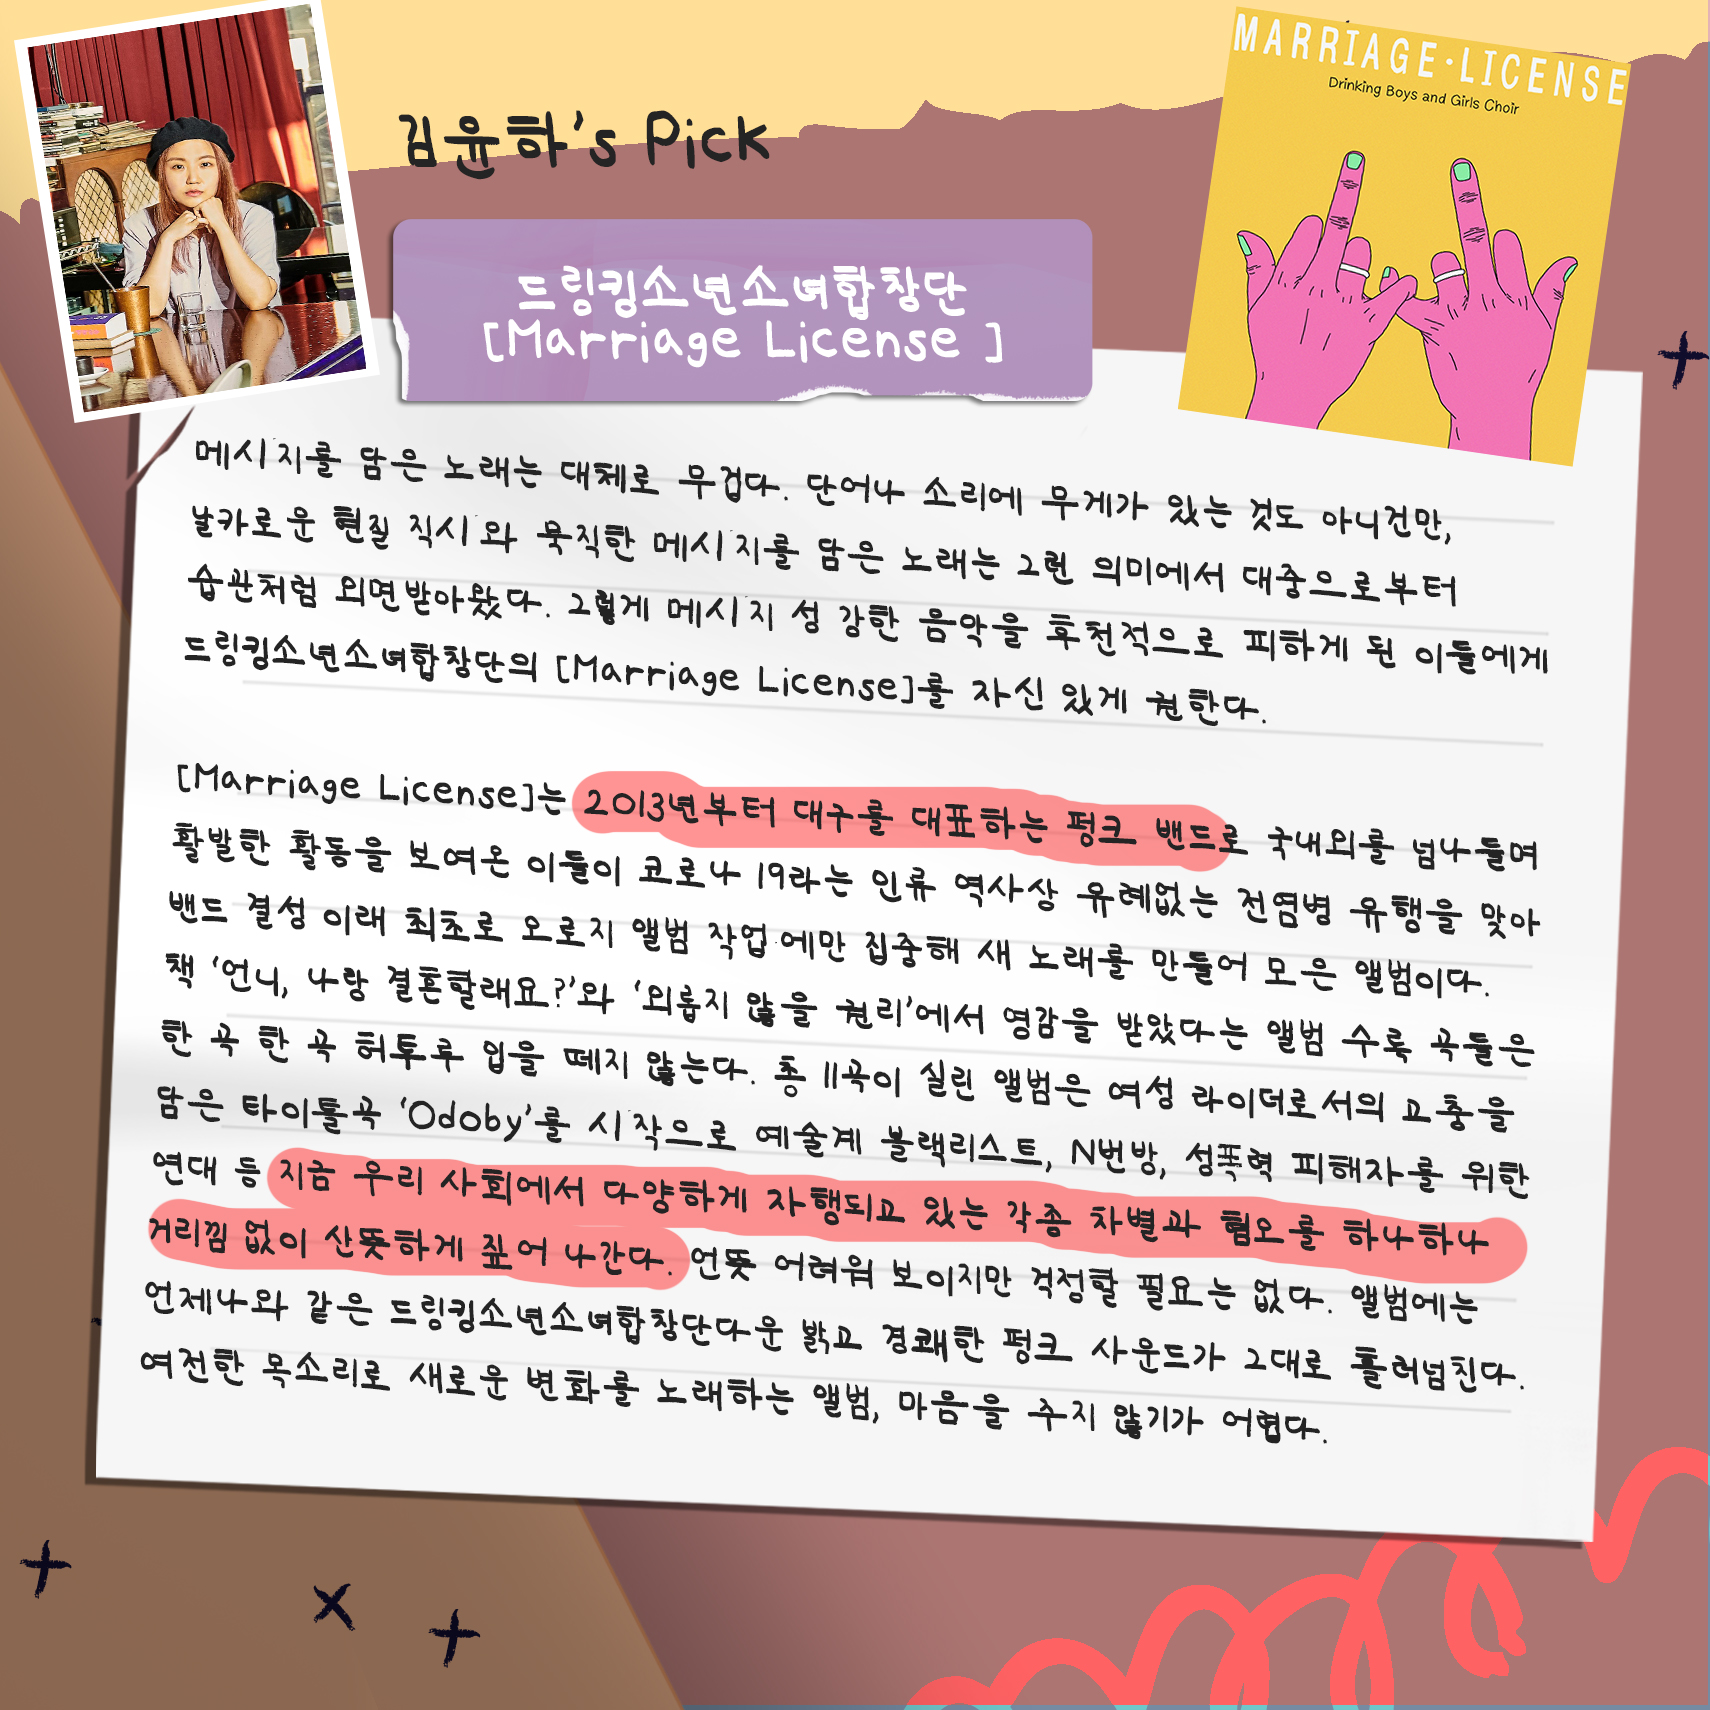 김윤하's Pick
MARRIAGE·LICENSE
Drinking Boys and Girls Choir
드링킹소년소녀합창단
[Marriage License ]
메시지를 담은 노래는 대체로 무겁다. 단어나 소리에 무게가 있는 것도 아니건만,
날카로운 현실 직시와 묵직한 메시지를 담은 노래는 그런 의미에서 대중으로부터
습관처럼 외면받아왔다. 그렇게 메시지 성 강한 음악을 후천적으로 피하게 된 이들에게
드링킹소년소녀합창단의 [Marriage License]를 자신 있게 권한다.
[Marriage License]는 2013년부터 대구를 대표하는 펑크 밴드로 국내외를 넘나들며
활발한 활동을 보여온 이들이 코로나 19라는 인류 역사상 유례없는 전염병 유행을 맞아
밴드 결성 이래 최초로 오로지 앨범 작업에만 집중해 새 노래를 만들어 모은 앨범이다.
책 '언니, 나랑 결혼할래요?'와 '외롭지 않을 권리'에서 영감을 받았다는 앨범 수록 곡들은
한 곡 한 곡 허투루 입을 떼지 않는다. 총 11곡이 실린 앨범은 여성 라이더로서의 고충을
담은 타이틀곡 'Odoby'를 시작으로 예술계 블랙리스트, N번방, 성폭력 피해자를 위한
연대 등 지금 우리 사회에서 다양하게 자행되고 있는 각종 차별과 혐오를 하나하나
거리낌 없이 산뜻하게 짚어 나간다. 언뜻 어려워 보이지만 걱정할 필요는 없다. 앨범에는
언제나와 같은 드링킹소년소녀합창단다운 밝고 경쾌한 펑크 사운드가 그대로 흘러넘친다.
여전한 목소리로 새로운 변화를 노래하는 앨범, 마음을 주지 않기가 어렵다.